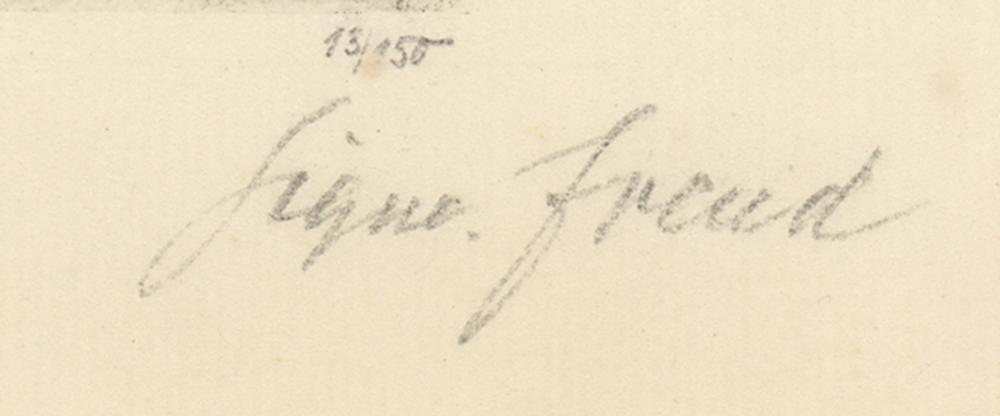 13/150
Sigm. Freud